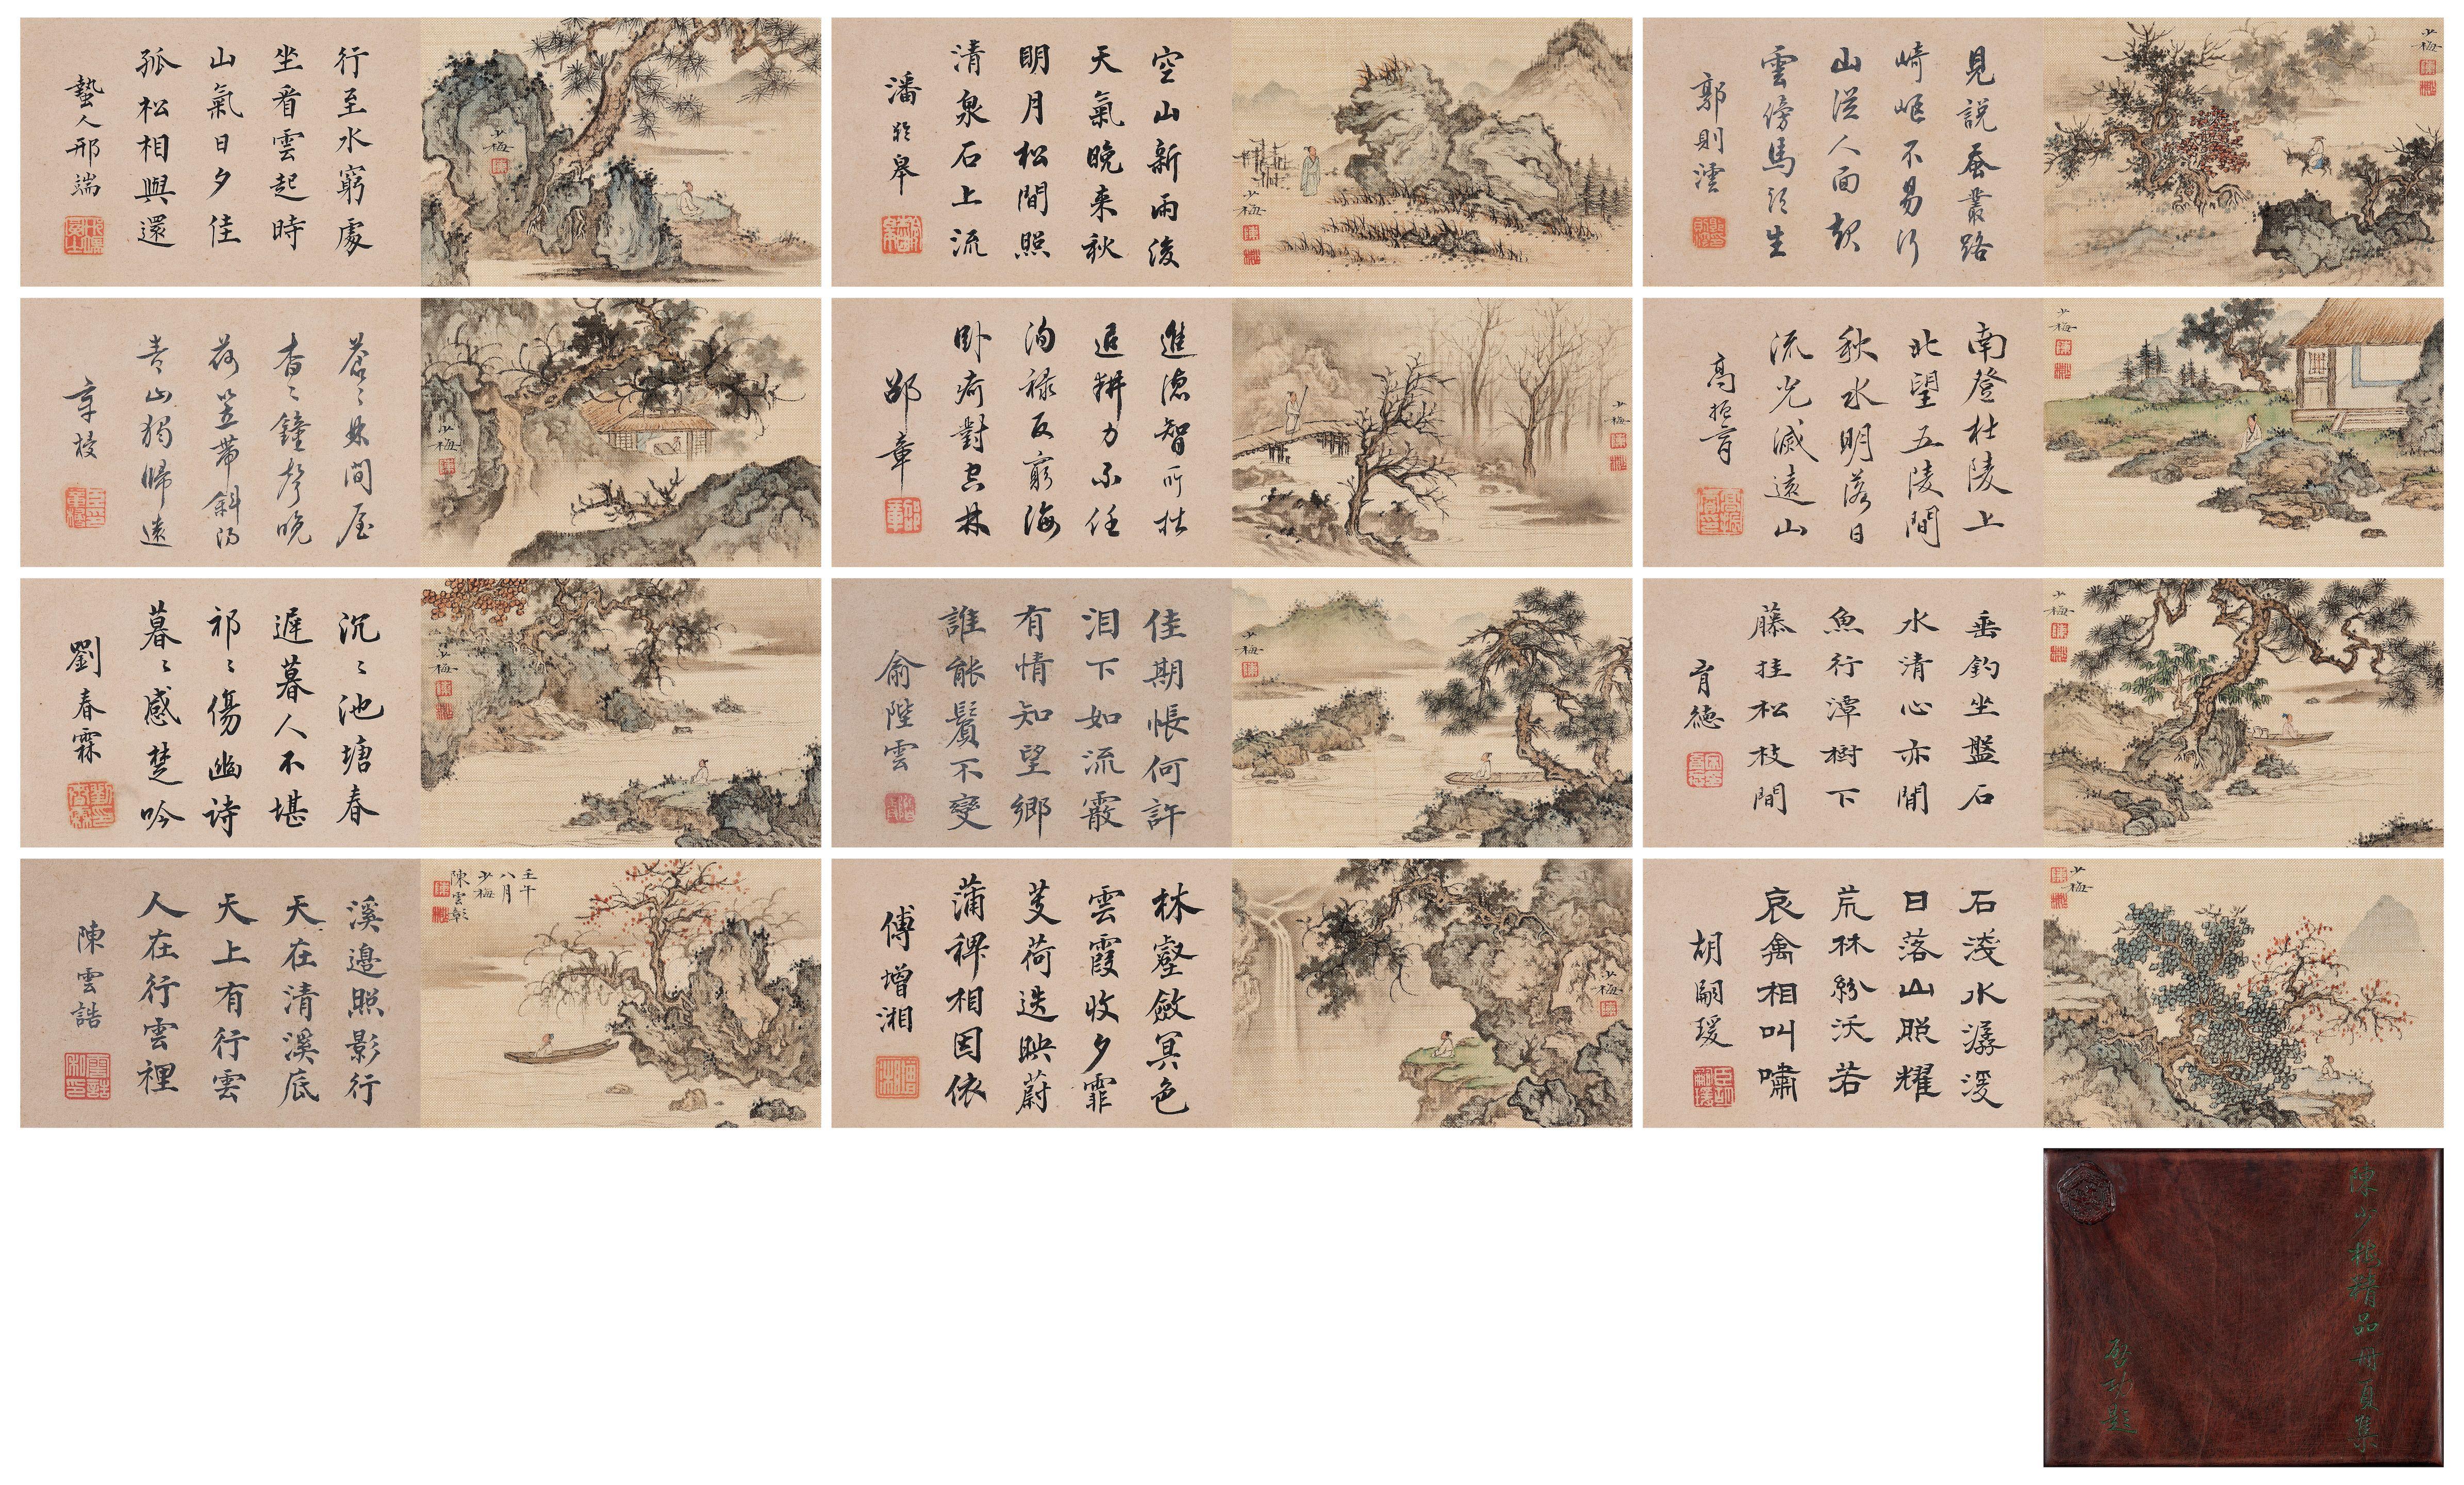 少梅
見說蚕叢路
崎嶇不易行
山從人面起
雲傍馬頭生
郭則澐
空山新雨後
天氣晚来秋
明月松間照
清泉石上流
潘齡皋
少梅
行至水窮處
坐看雲起時
山氣日夕佳
孤松相與還
蟄人邢端
少梅
少梅
南登杜陵上
北望五陵間
秋水明落日
流光滅遠山
高振霄
少梅
進德智所拙
退耕力不任
徇祿反窮海
卧痾對空林
邵章
少梅
蒼〻林間屋
杳〻鐘聲晚
荷笠帶斜陽
青山獨歸遠
章梫
少梅
垂釣坐盤石
水清心亦閒
魚行潭樹下
藤挂松枝間
育德
少梅
佳期悵何許
泪下如流霰
有情知望鄉
誰能鬒不變
俞陛雲
少梅
沉〻池塘春
遲暮人不堪
祁〻傷豳詩
萋〻感楚吟
劉春霖
少梅
石淺水潺湲
日落山照耀
荒林紛沃若
哀禽相叫嘯
胡嗣瑗
少梅
林壑斂冥色
雲霞收夕霏
芰荷迭映蔚
蒲稗相因依
傅增湘
壬午
八月
少梅
陳雲彰
溪邊照影行
天在清溪底
天上有行雲
人在行雲裡
陳雲誥
陳少梅精品册頁集
啓功題